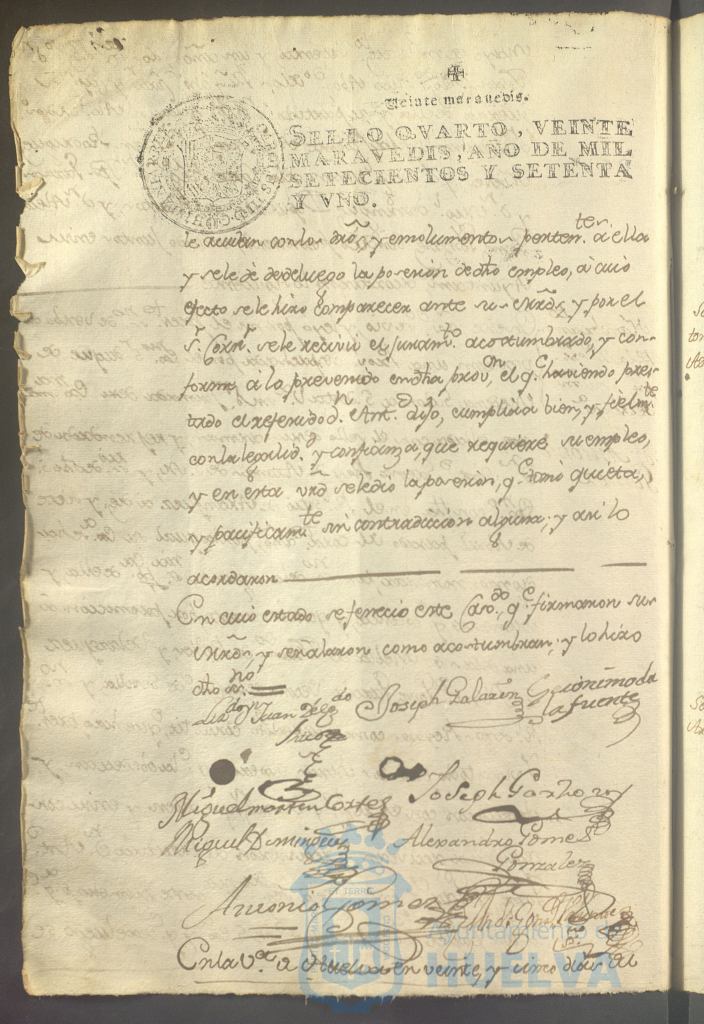 Veinte maravedis.
SELLO QVARTO, VEINTE
MARAVEDIS, AÑO DE MIL
SETECIENTOS Y SETENTA
Y VNO.
le acuden con los dros, y emolumentos perten.tes a ella
y se le dè desde luego la posesion de dho empleo, à cuio
efecto se le hizo comparecer ante su mrds, y por el
s.r Corr.r se le recivio el juram.to acostumbrado, y con-
forme à lo prevenido en dha prov.n, el q.e haviendo pres-
tado el referido d.n Ant.o dijo, cumplirà bien, y fielm.te
con la legalid.d y confianza, que requiere su empleo,
y en esta vrd se le dio la posesion, q.e tomò quieta,
y pacificam.te sin contradiccion alguna; y asi lo
acordaron
En cuio estado se fenecio este Cav.do, q.e firmaron sus
mrds, y señalaron como acostumbran; y lo hizo
dho
Lizd.o Dn Juan Joseph Galazin Geronimo de
la fuente
Miguel martin Cortes Joseph Garho
Miguel Dominguez Alexandro Gomes
Gonzalez
Antonio Gomez
En la V.a de Huelva en veinte, y cinco dias de
Ayuntamiento de
HUELVA